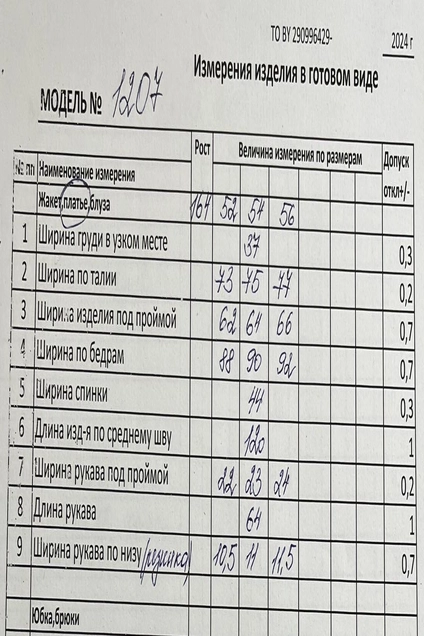 ТО BY 290996429-
2024 г
Измерения изделия в готовом виде
МОДЕЛЬ № 1207
№ пп Наименование измерения Рост Величина измерения по размерам Допуск откл+/-
Жакет,платье,блуза 164 52 54 56
1 Ширина груди в узком месте 37 0,3
2 Ширина по талии 73 75 77 0,2
3 Ширина изделия под проймой 62 64 66 0,7
4 Ширина по бедрам 88 90 92 0,7
5 Ширина спинки 44 0,3
6 Длина изд-я по среднему шву 120 1
7 Ширина рукава под проймой 22 23 24 0,2
8 Длина рукава 64 1
9 Ширина рукава по низу (резинка) 10,5 11 11,5 0,7
Юбка,брюки